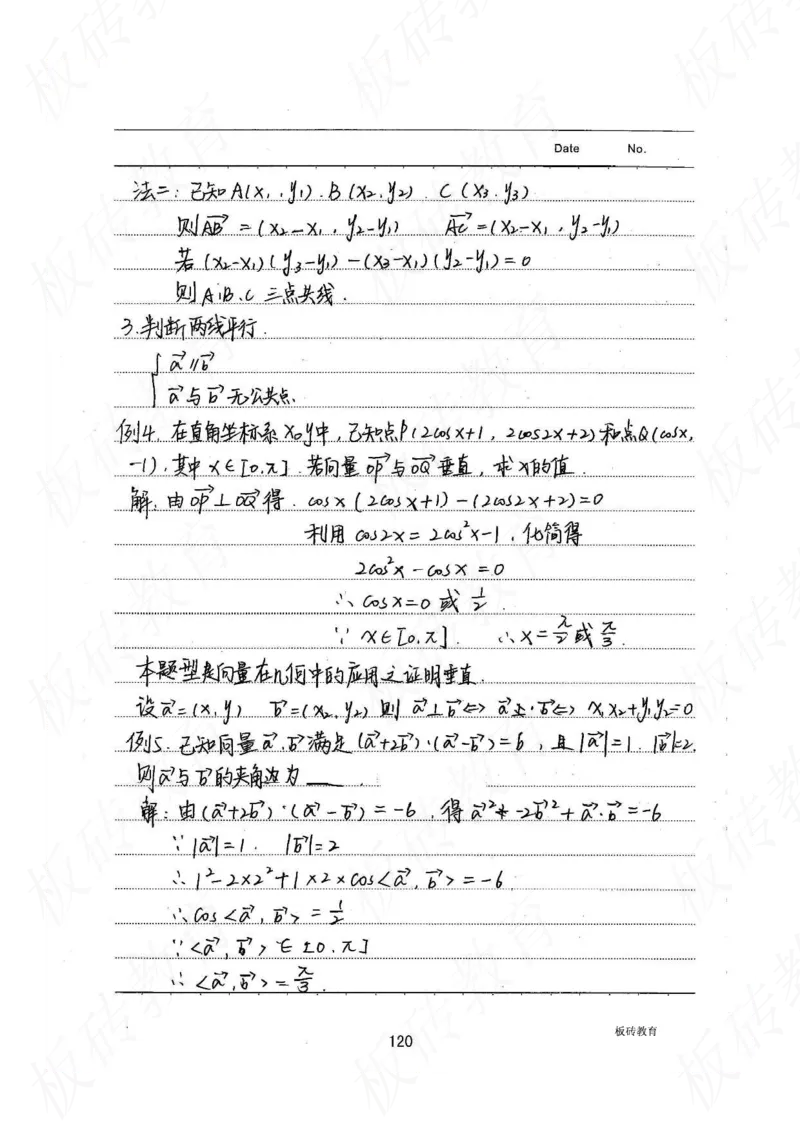 Date No.
法二：已知A(x₁,y₁).B(x₂,y₂).C(x₃.y₃)
则AB⃗=(x₂-x₁,y₂-y₁) AC⃗=(x₂-x₁,y₂-y₁)
若(x₂-x₁)(y₃-y₁)-(x₃-x₁)(y₂-y₁)=0
则A.B.C三点共线.
3.判断两线平行.
{ a⃗∥b⃗
a⃗与b⃗无公共点.
例4.在直角坐标系xoy中,已知点P(2cosx+1,2cos2x+2)和点Q(cosx,
-1),其中x∈[0,π].若向量OP⃗与OQ⃗垂直,求x的值.
解:由OP⃗⊥OQ⃗得.cosx(2cosx+1)-(2cos2x+2)=0
利用cos2x=2cos²x-1,化简得
2cos²x-cosx=0
∴cosx=0或1/2
∵x∈[0,π].∴x=π/2或π/3.
本题型是向量在几何中的应用之证明垂直.
设a⃗=(x,y) b⃗=(x₂,y₂)则a⃗⊥b⃗⇔a⃗·b⃗⇔x₁x₂+y₁y₂=0
例5.已知向量a⃗.b⃗满足(a⃗+2b⃗)·(a⃗-b⃗)=6,且|a⃗|=1.|b⃗|=2,
则a⃗与b⃗的夹角为____.
解:由(a⃗+2b⃗)·(a⃗-b⃗)=-6,得a⃗²-2b⃗²+a⃗·b⃗=-6
∵|a⃗|=1.|b⃗|=2
∴1²-2×2²+1×2×cos<a⃗,b⃗>=-6.
∴cos<a⃗,b⃗>=1/2
∵<a⃗,b⃗>∈[0.π]
∴<a⃗,b⃗>=π/3.
板砖教育
120